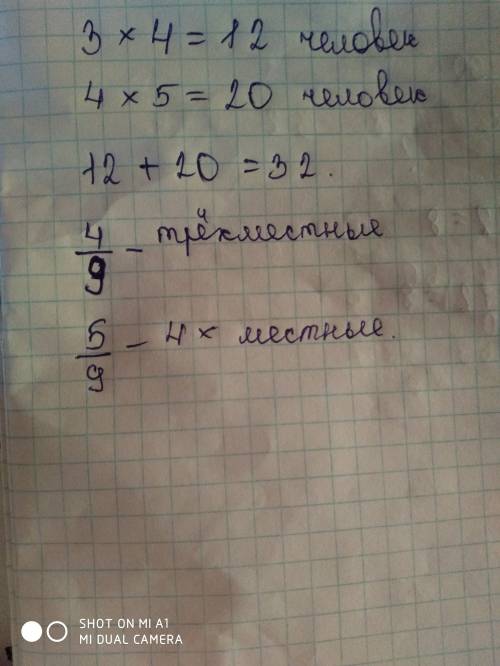 3 × 4 = 12 человек
4 × 5 = 20 человек
12 + 20 = 32.
4/9 - трёхместные
5/9 - 4х местные.
SHOT ON MI A1
MI DUAL CAMERA